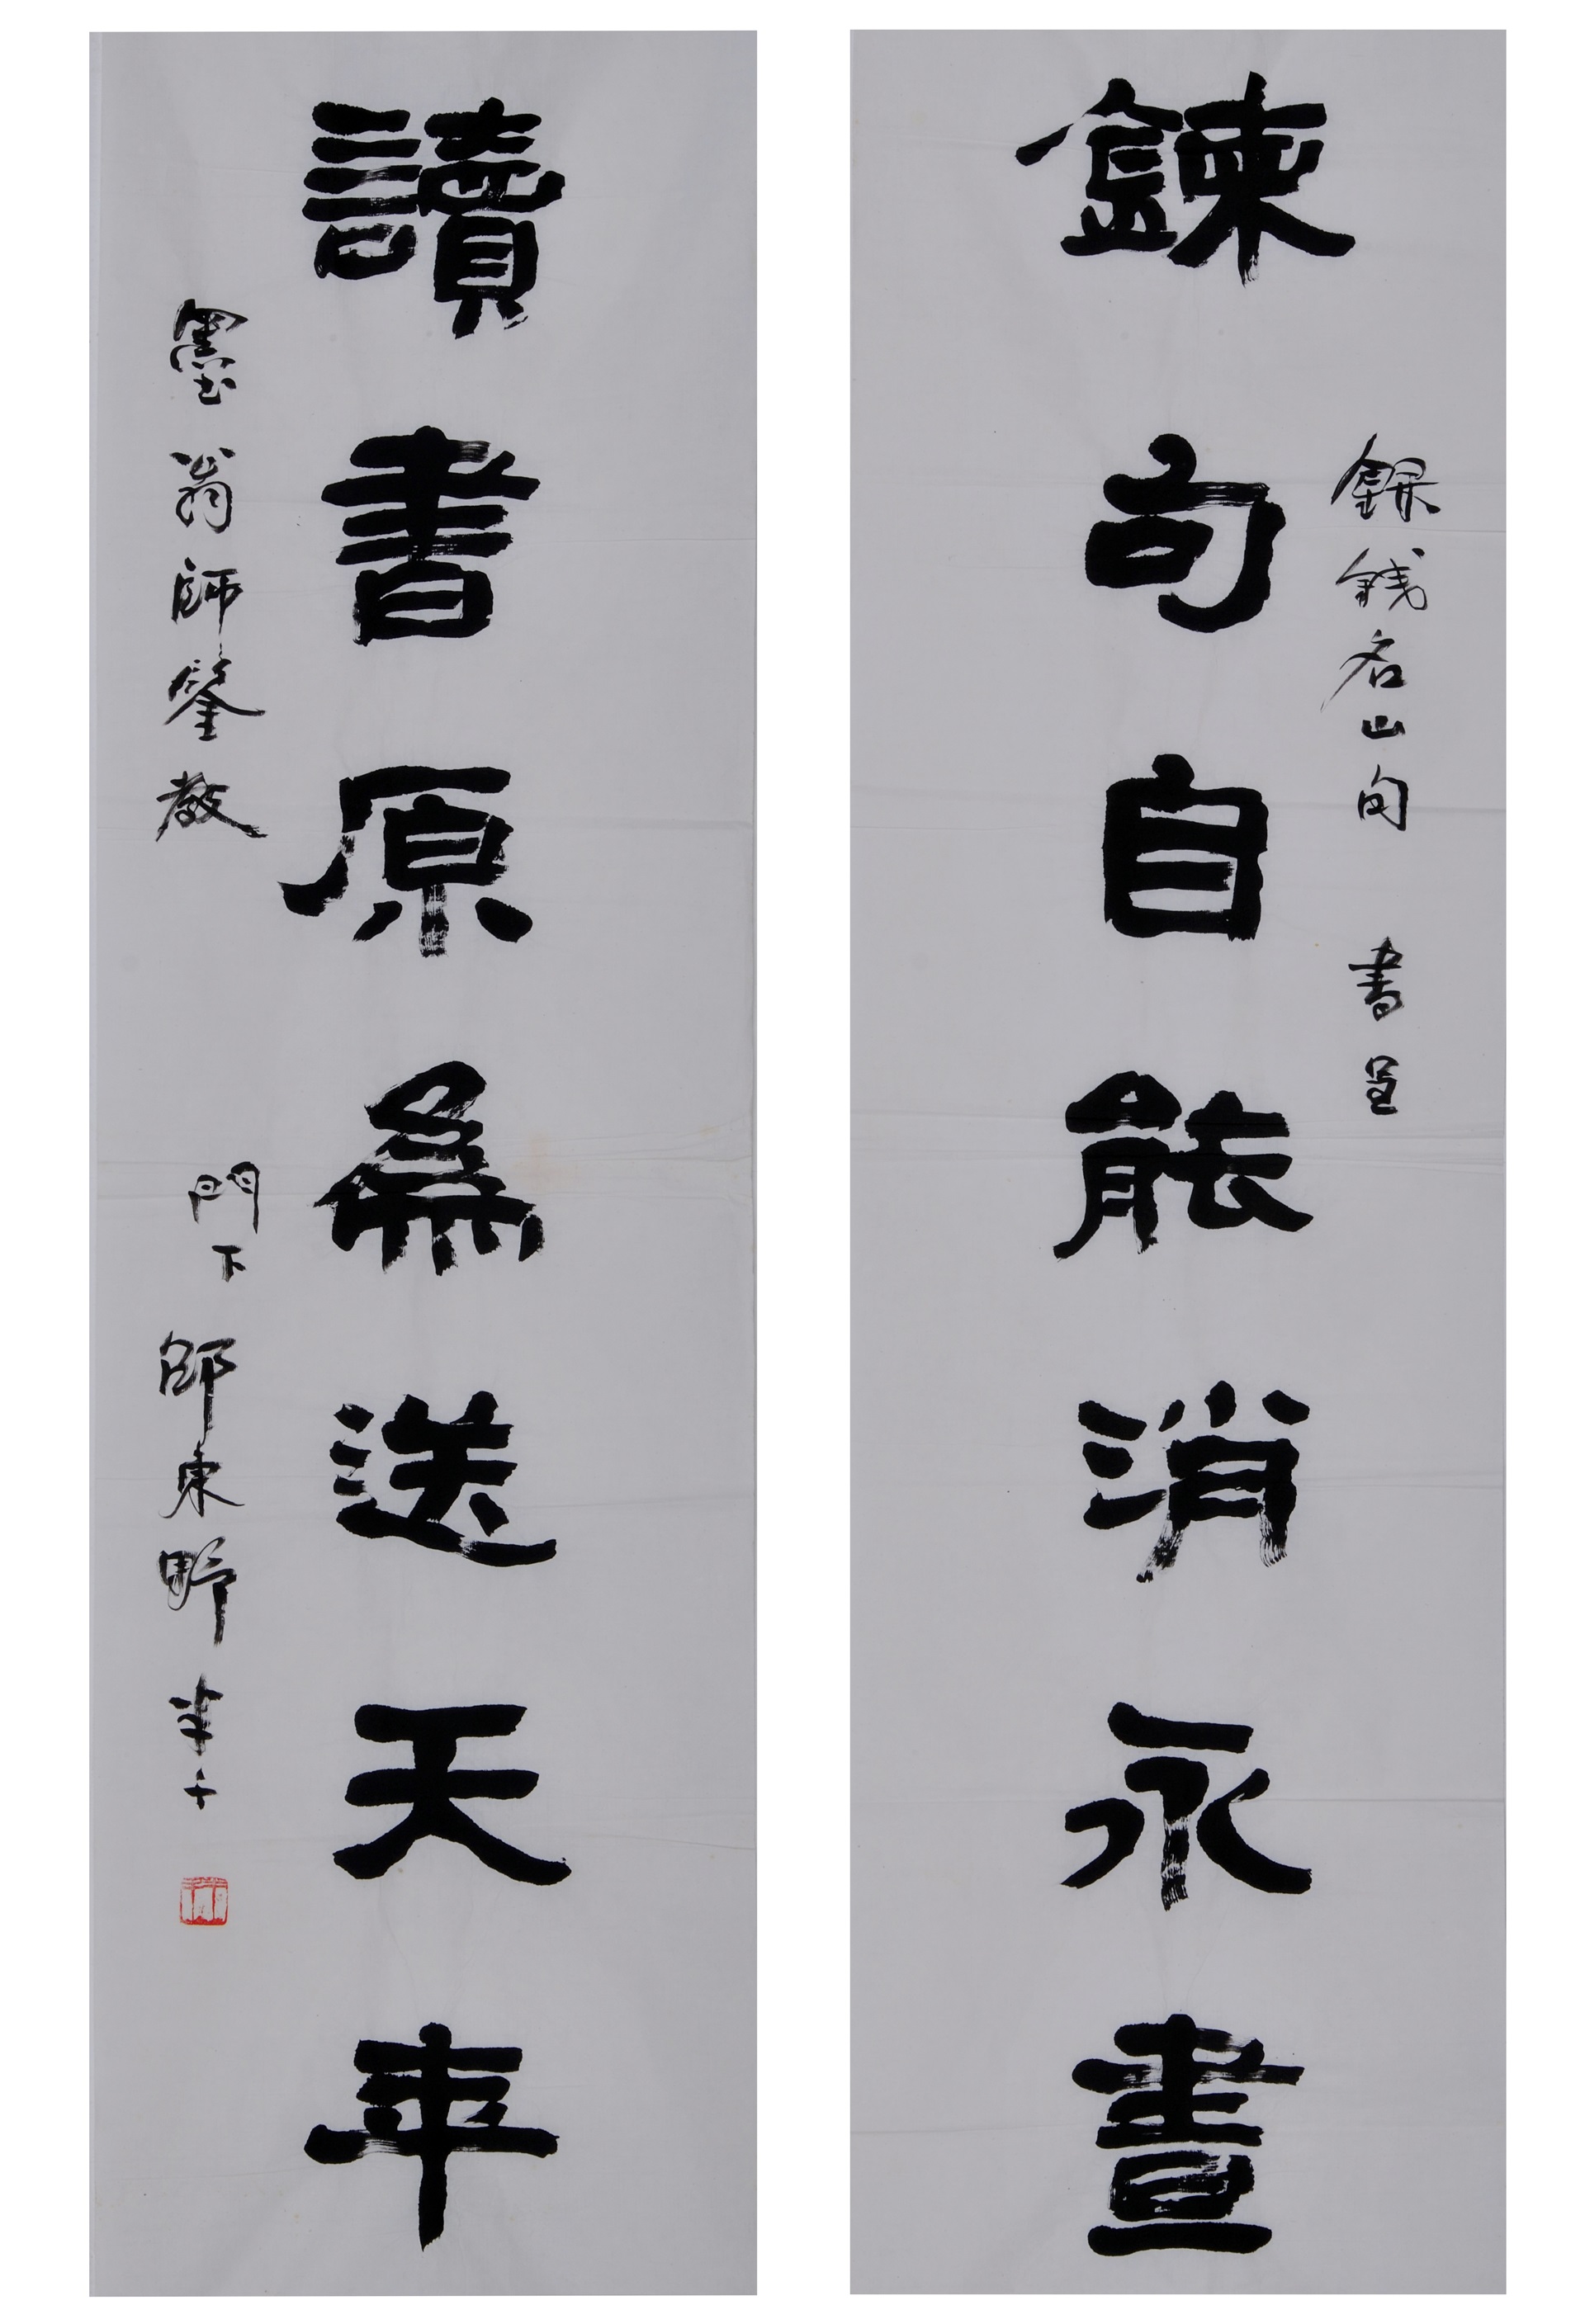 錄錢名山句 書呈
鍊句自能消永晝
讀書原爲送天年
墨翁師鑒教 門下 邵東野